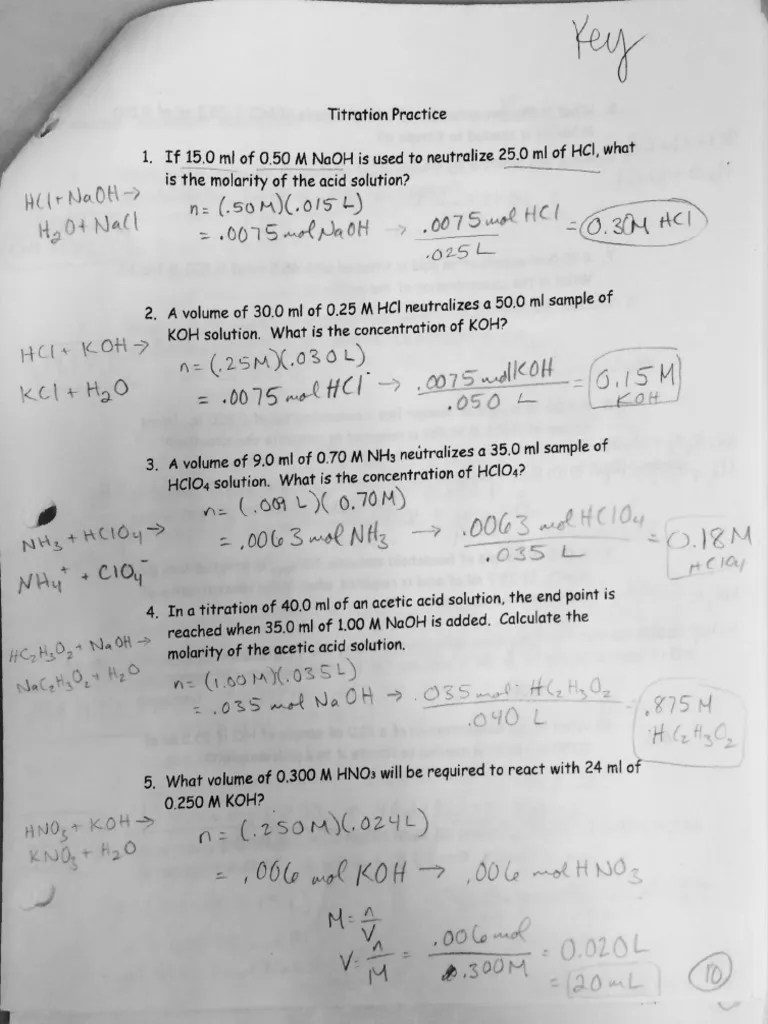 Key
Titration Practice
1. If 15.0 ml of 0.50 M NaOH is used to neutralize 25.0 ml of HCl, what
is the molarity of the acid solution?
HCl + NaOH →
H₂O + NaCl
n = (.50 M)(.015 L)
= .0075 mol NaOH → .0075 mol HCl
.025 L
= 0.30M HCl
2. A volume of 30.0 ml of 0.25 M HCl neutralizes a 50.0 ml sample of
KOH solution. What is the concentration of KOH?
HCl + KOH →
KCl + H₂O
n = (.25M)(.030L)
= .0075 mol HCl → .0075 mol KOH
.050 L
= 0.15 M
KOH
3. A volume of 9.0 ml of 0.70 M NH₃ neutralizes a 35.0 ml sample of
HClO₄ solution. What is the concentration of HClO₄?
NH₃ + HClO₄ →
NH₄⁺ + ClO₄⁻
n = (.009 L)(0.70M)
= .0063 mol NH₃ → .0063 mol HClO₄
.035 L
= 0.18 M
HClO₄
4. In a titration of 40.0 ml of an acetic acid solution, the end point is
reached when 35.0 ml of 1.00 M NaOH is added. Calculate the
molarity of the acetic acid solution.
HC₂H₃O₂ + NaOH →
NaC₂H₃O₂ + H₂O
n = (1.00 M)(.035L)
= .035 mol NaOH → .035 mol HC₂H₃O₂
.040 L
= .875 M
HC₂H₃O₂
5. What volume of 0.300 M HNO₃ will be required to react with 24 ml of
0.250 M KOH?
HNO₃ + KOH →
KNO₃ + H₂O
n = (.250M)(.024L)
= .006 mol KOH → .006 mol HNO₃
M = n/V
V = n/M = .006 mol / 0.300M = 0.020L
= 20 mL
10